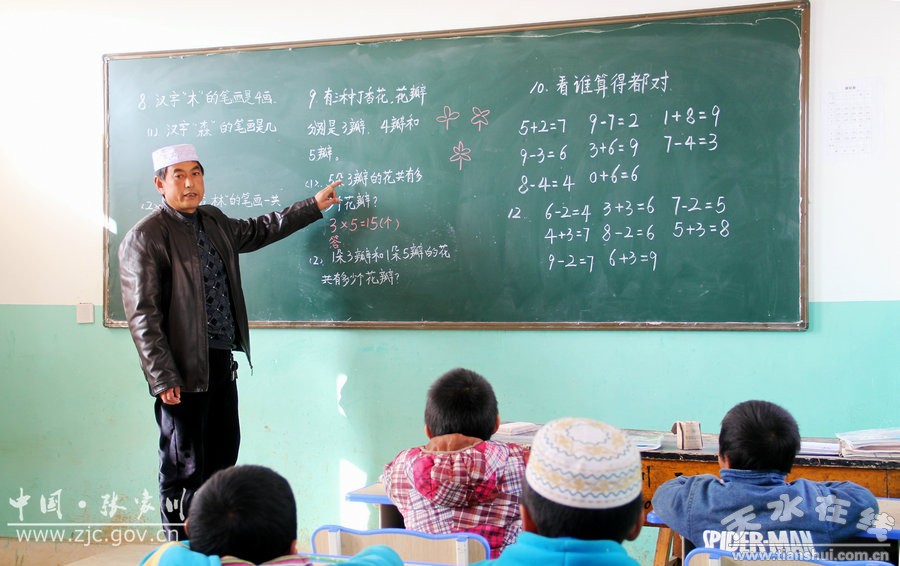 8 汉字"木"的笔画是4画.
(1) 汉字"森"的笔画是几
林"的笔画一共
9 有三种丁香花,花瓣
分别是3瓣、4瓣和
5瓣。
(1)、5朵3瓣的花共有多
个花瓣?
3×5=15(个)
答
(2)、1朵3瓣和1朵5瓣的花
共有多少个花瓣?
10. 看谁算得都对
5+2=7 9-7=2 1+8=9
9-3=6 3+6=9 7-4=3
8-4=4 0+6=6
12. 6-2=4 3+3=6 7-2=5
4+3=7 8-2=6 5+3=8
9-2=7 6+3=9
SPIDER-MAN
中国·张家川
www.zjc.gov.cn
天水在线
www.tianshui.com.cn